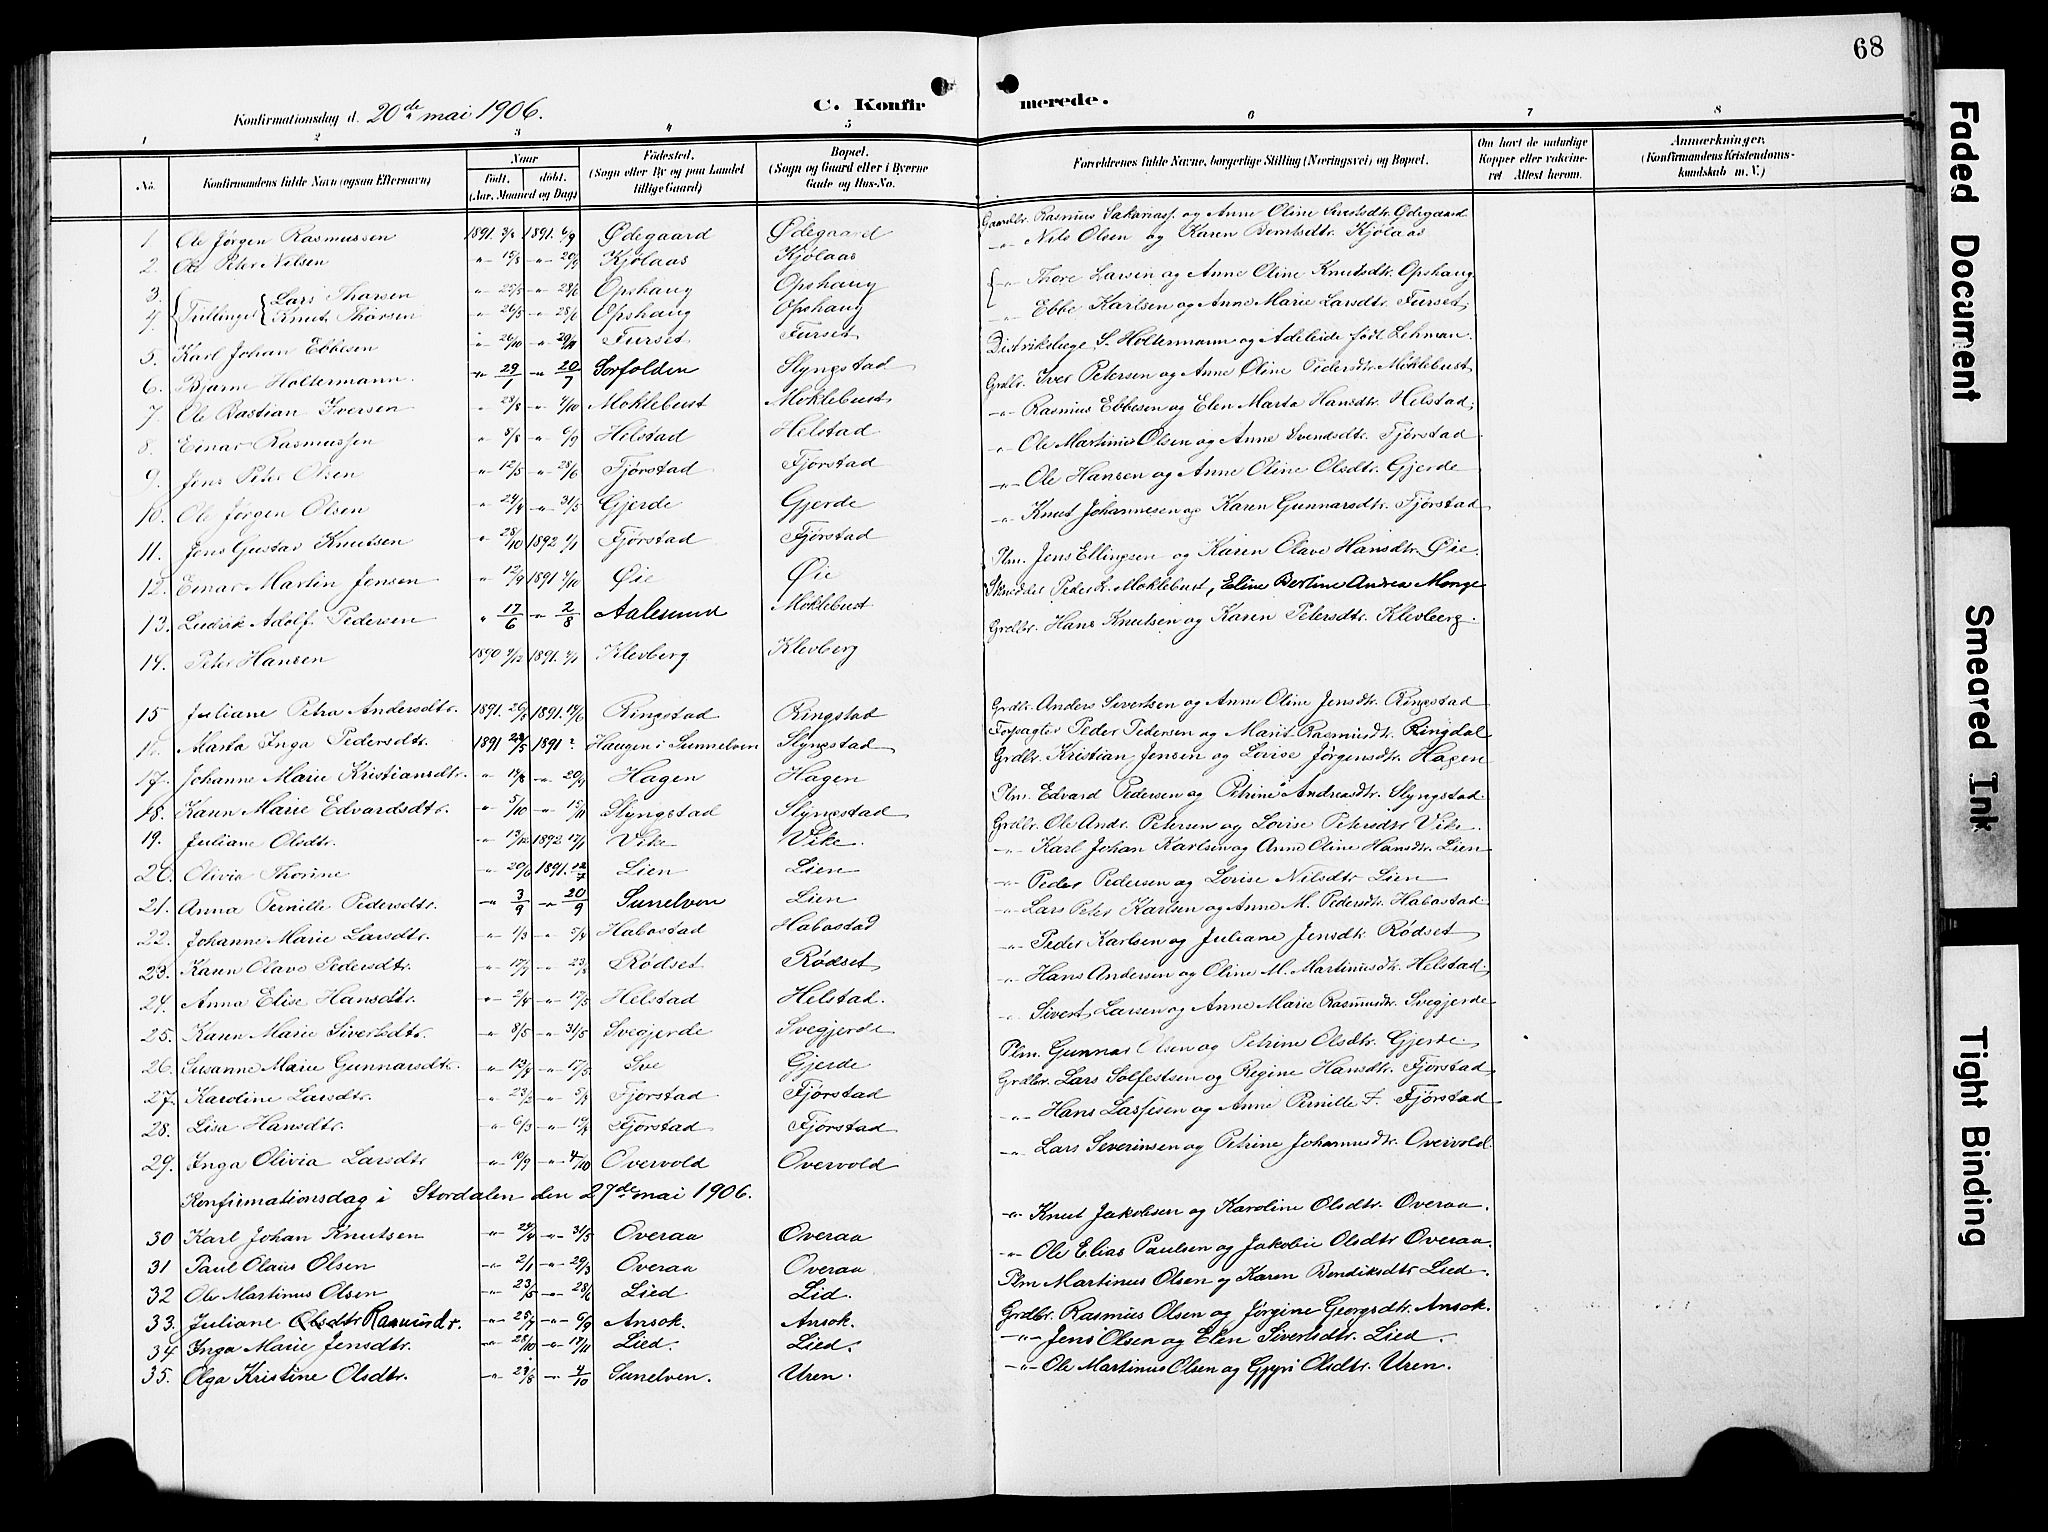 68
Konfirmationsdag d. 20de mai 1906. C. Konfirmerede.
1 2 3 4 5 6 7 8
No. Konfirmandens fulde Navn (ogsaa Efternavn) Naar Født. døbt. (Aar, Maaned og Dag) Fødested. (Sogn eller By og paa Landet tillige Gaard) Bopæl. (Sogn og Gaard eller i Byerne Gade og Hus-No. Forældrenes fulde Navne, borgerlige Stilling (Næringsvei) og Bopæl. Om havt de naturlige Kopper eller vakcineret Attest herom. Anmærkninger. (Konfirmandens Kristendomskundskab m. V.)
1. Ole Jørgen Rasmussen 1891. 1891. 6/9 Ødegaard Ødegaard Gaardbr. Rasmus Sakariass. og Anne Oline Sivertsdtr. Ødegaard
2. Ole Peter Nilsen " 19/8 " 20/9 Kjølaas Kjølaas " Nils Olsen og Karen Berntsdtr. Kjølaas
3. Tvillinger { Lars Thorsen " 25/5 " 28/6 Opshaug Opshaug { " Thore Larsen og Anne Oline Knutsdtr. Opshaug
4. Knut Thorsen " 26/5 " 28/6 Opshaug Opshaug
5. Karl Johan Ebbesen " 26/10 " 29/11 Furset Furset " Ebbe Karlsen og Anne Marie Larsdtr. Furset
6. Bjarne Holtermann. " 29/1 " 20/7 Sørfolden Slyngstad Distriktslæge S. Holtermann og Adeleide født Lehman.
7. Ole Bastian Iversen " 28/8 " 4/10 Moklebust Moklebust Grdbr. Iver Petersen og Anne Oline Pedersdtr. Moklebust
8. Einar Rasmussen " 8/8 " 6/9 Helstad Helstad " Rasmus Ebbesen og Elen Marta Hansdtr. Helstad
9. Jens Peter Olsen " 12/5 " 28/6 Fjørstad Fjørstad " Ole Martinus Olsen og Anne Svendsdtr. Fjørstad
10. Ole Jørgen Olsen " 24/4 " 31/5 Gjerde Gjerde " Ole Hansen og Anne Oline Olsdtr. Gjerde
11. Jens Gustav Knutsen " 28/10 1892 1/1 Fjørstad Fjørstad " Knut Johannesen og Karen Gunnarsdtr. Fjørstad
12. Einar Martin Jensen " 12/9 1891 4/10 Øie Øie Plm. Jens Ellingsen og Karen Olave Hansdtr. Øie.
13. Ludvik Adolf Pedersen " 17/6 " 2/8 Aalesund Moklebust Skrædder Peder L. Moklebust, Eline Bertine Andrea Monge
14. Peter Hansen 1890 1891. Klevberg Klevberg Grdbr. Hans Knutsen og Karen Petersdtr. Klevberg.
15 Juliane Petra Andersdtr. 1891. 26/5 1891. 14/6 Ringstad Ringstad Grdbr. Anders Sivertsen og Anne Oline Jensdtr. Ringstad
16. Marta Inga Pedersdtr. 1891 1891 ? Haugen i Sunnelven Slyngstad Forpagter Peder Pedersen og Marit Rasmusdtr. Ringdal
17. Johanne Marie Kristiansdtr. " 14/8 " 20/9 Hagen Hagen Grdbr. Kristian Jensen og Lovise Jørgensdtr. Hagen
18. Karen Marie Edvardsdtr. " 5/10 " 15/11 Slyngstad Slyngstad Plm. Edvard Pedersen og Petrine Andreasdtr. Slyngstad
19. Juliane Olsdtr. " 13/12 1892 17/1 Vike Vike. Grdbr. Ole Andr. Petersen og Lovise Petersdtr Vike
20. Olivia Thorine " 20/6 1891. 12/7 Lien Lien " Karl Johan Karlsen og Anne Oline Hansdtr. Lien
21. Anna Pernille Pedersdtr. " 3/9 " 20/9 Sunelven Lien " Peder Pedersen og Lovise Nilsdtr Lien
22. Johanne Marie Larsdtr. " 1/3 " 5/4 Habostad Habostad " Lars Peter Karlsen og Anne M. Pedersdtr. Habostad
23. Karen Olave Pedersdtr. " 17/7 " 23/8 Rødset Rødset " Peder Karlsen og Juliane Jensdtr. Rødset
24. Anna Elise Hansdtr. " 2/4 " 17/5 Helstad Helstad. " Hans Andersen og Oline M. Martinusdtr. Helstad
25. Karen Marie Sivertsdtr. " 8/5 " 31/5 Svegjerde Svegjerde " Sivert Larsen og Anne Marie Rasmusdtr. Svegjerde
26. Susanne Marie Gunnarsdtr. " 13/4 " 17/5 Sve Gjerde Plm. Gunnar Olsen og Petrine Olsdtr. Gjerde.
27. Karoline Larsdtr. " 23/2 " 5/4 Fjørstad Fjørstad Grdbr. Lars Solfestsen og Regine Hansdtr. Fjørstad
28. Lisa Hansdtr. " 6/3 " 19/4 Fjørstad Fjørstad " Hans Lassesen og Anne Pernille F. Fjørstad
29. Inga Olivia Larsdtr " 10/9 " 4/10 Overvold Overvold " Lars Severinsen og Petrine Johannesdtr. Overvold
Konfirmationsdag i Stordalen den 27de mai 1906.
30 Karl Johan Knutsen " 24/4 " 31/5 Overaa Overaa " Knut Jakobsen og Karoline Olsdtr. Overaa.
31 Paul Olaus Olsen " 2/1 " 29/3 Overaa Overaa. " Ole Elias Paulsen og Jakobie Olsdtr Overaa.
32 Ole Martinus Olsen " 23/5 " 28/6 Lied Lid. Plm Martinus Olsen og Karen Bendiksdtr Lied.
33. Juliane Olsdtr Rasmusdr. " 25/7 " 6/9 Ansok. Ansok. Grdbr. Rasmus Olsen og Jørgine Georgsdtr. Ansok.
34 Inga Marie Jensdtr. " 28/10 " 17/11 Lied. Lied. " Jens Olsen og Elen Sivertsdtr. Lied.
35. Olga Kristine Olsdtr. " 29/8 " 4/10 Sunelven. Uren. " Ole Martinus Olsen og Gjyri Olsdtr. Uren.
Faded Document
Smeared Ink
Tight Binding